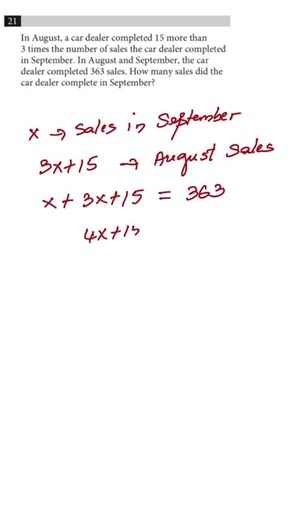 21
In August, a car dealer completed 15 more than
3 times the number of sales the car dealer completed
in September. In August and September, the car
dealer completed 363 sales. How many sales did the
car dealer complete in September?
x → Sales in September
3x+15 → August Sales
x + 3x+15 = 363
4x+15